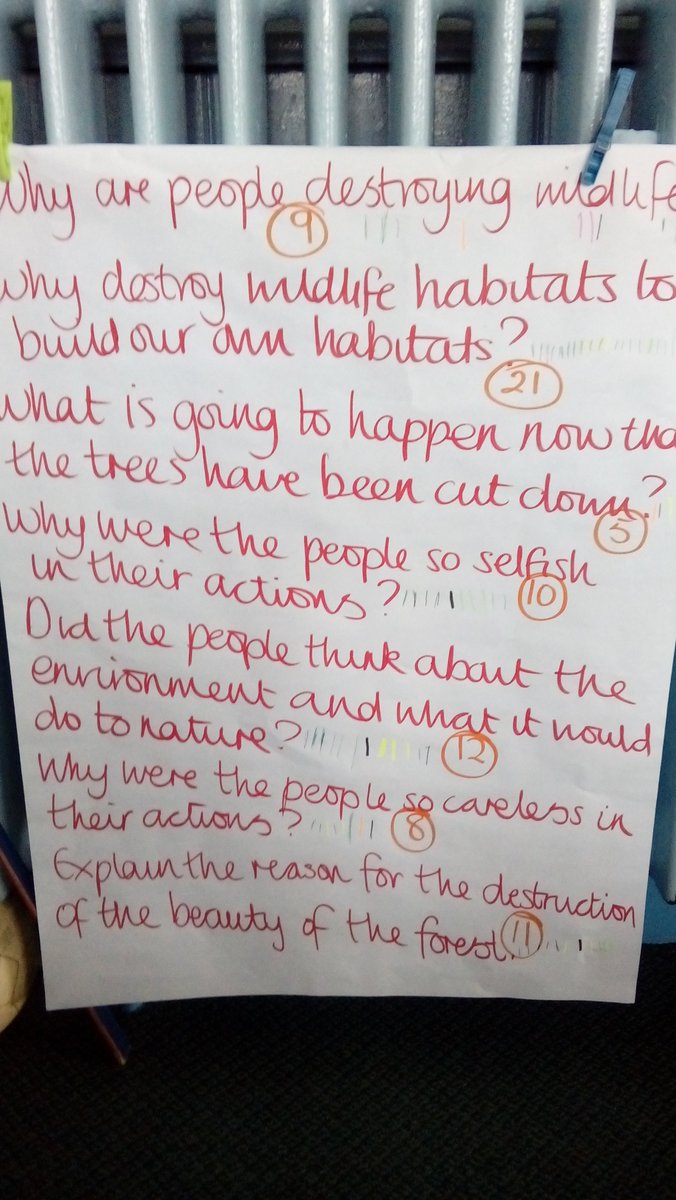 Why are people destroying wildlife
9
Why destroy wildlife habitats to
build our own habitats?
21
What is going to happen now tha
the trees have been cut down?
5
Why were the people so selfish
in their actions? 10
Did the people think about the
environment and what it would
do to nature? 12
Why were the people so careless in
their actions? 8
Explain the reason for the destruction
of the beauty of the forest. 11